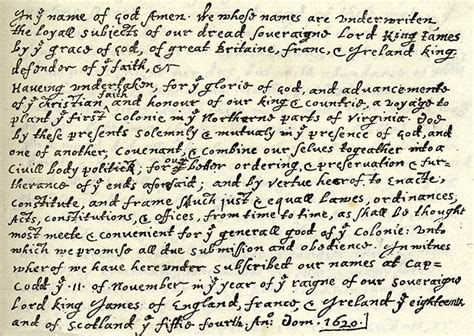 In yͤ name of god Amen. We whose names are underwriten,
the loyall subjects of our dread soveraigne Lord King James
by yͤ grace of god, of great Britaine, franc, & Ireland king,
defender of yͤ faith, &c
Haveing undertaken, for yͤ glorie of god, and advancemente
of yͤ christian faith and honour of our king & countrie, a voyage to
plant yͤ first Colonie in yͤ Northerne parts of Virginia. Doe
by these presents solemnly & mutualy in yͤ presence of god, and
one of another, covenant, & combine our selves togeather into a
Civill body politick; for our better ordering, & preservation & fur-
therance of yͤ ends aforesaid; and by vertue hearof to Enacte,
constitute, and frame such just & equall Lawes, ordinances,
Acts, constitutions, & offices, from time to time, as shall be thought
most meete & convenient for yͤ generall good of yͤ Colonie: unto
which we promise all due submission and obedience. In witnes
wherof we have hereunder subscribed our names at Cap-
Codd yͤ .11. of November in yͤ year of yͤ raigne of our soveraigne
Lord king James of England, france & Ireland yͤ eighteenth
and of Scotland yͤ fiftie fourth. Anͦ: Dom. 1620.]